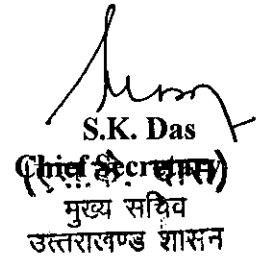 S.K. Das
Chief Secretary
मुख्य सचिव
उत्तराखण्ड शासन